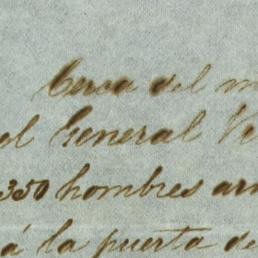 Cerca del m
el General V
350 hombres ar
á la puerta de